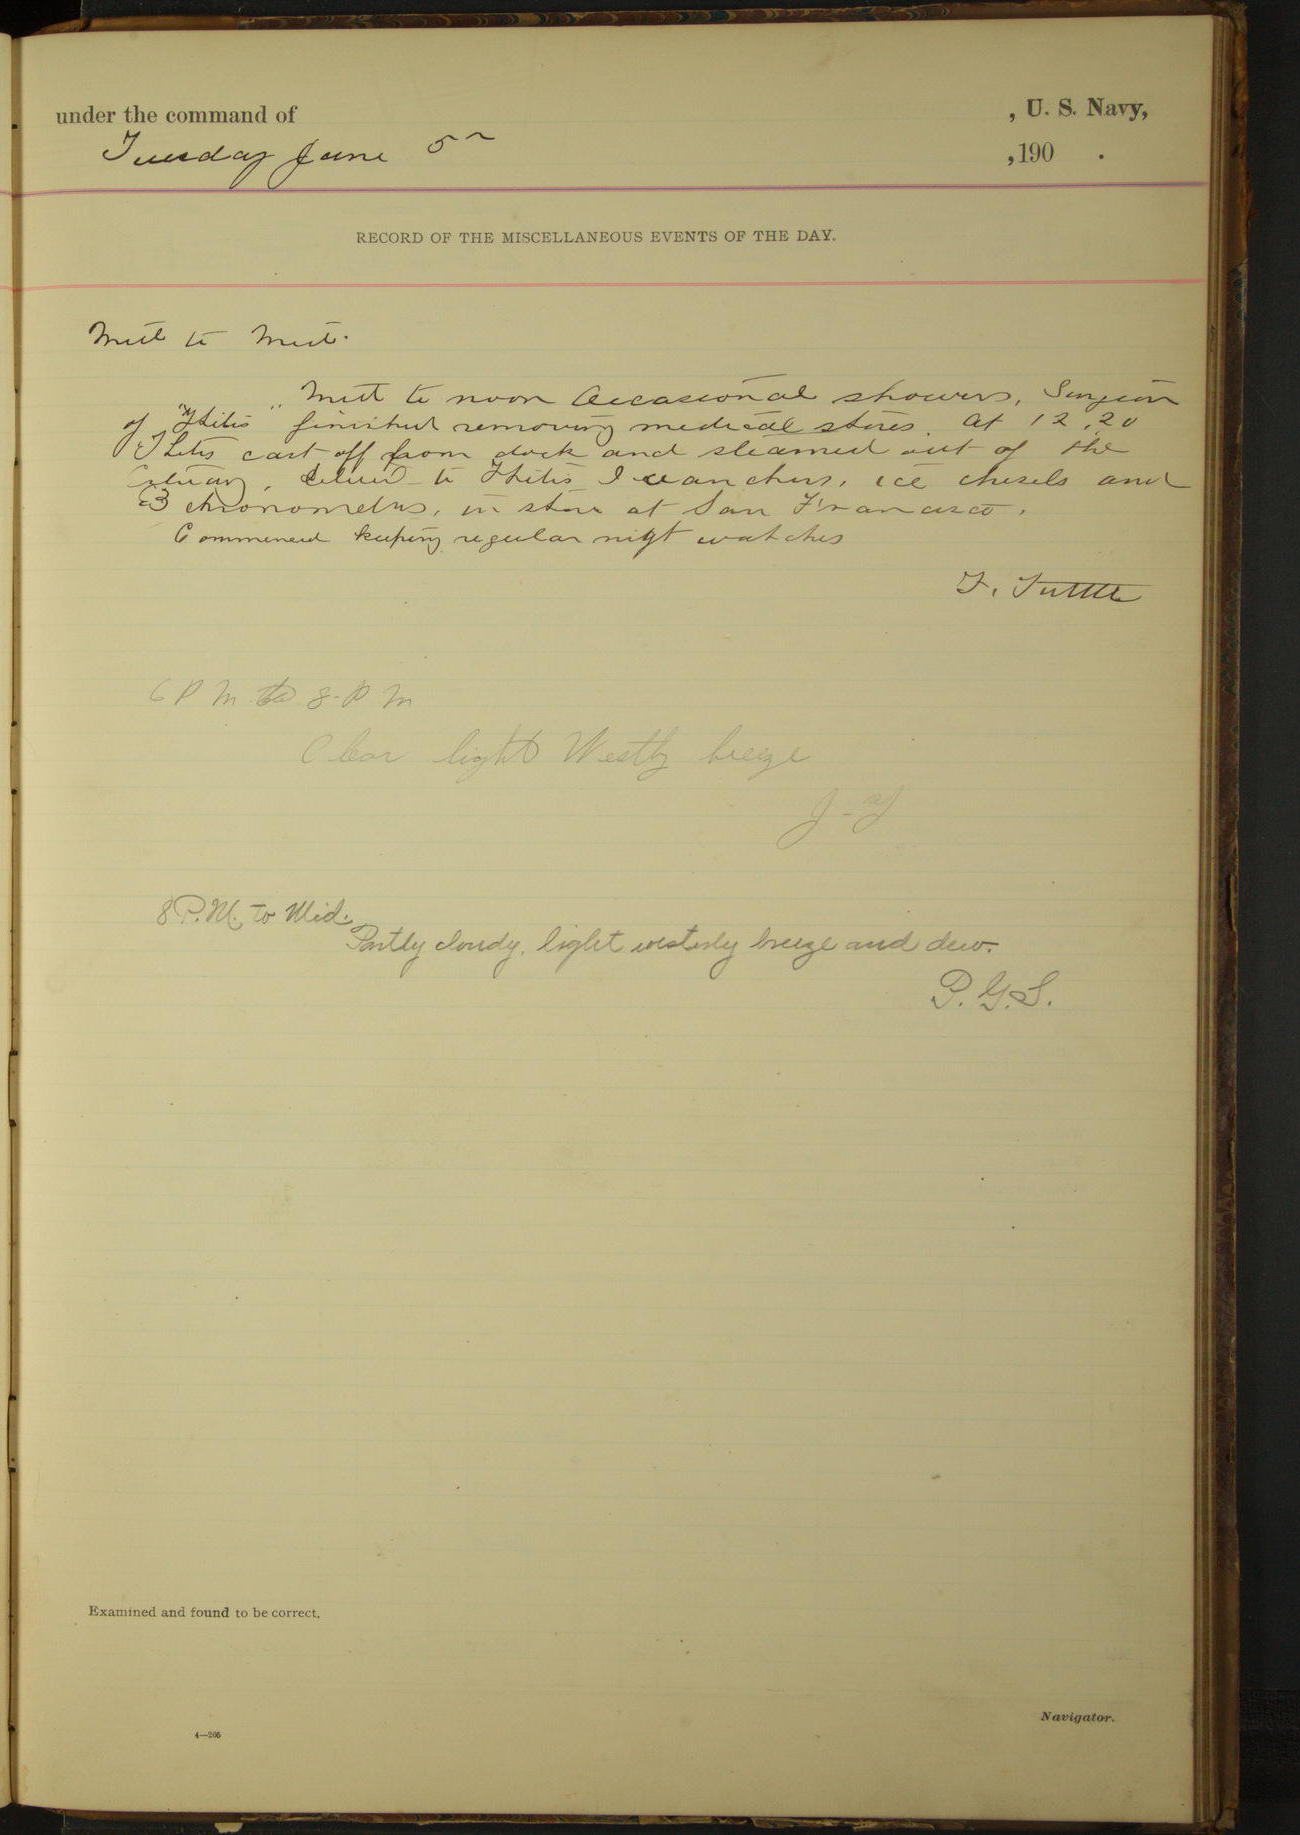 under the command of , U. S. Navy,
Tuesday June 5 ,190 .
RECORD OF THE MISCELLANEOUS EVENTS OF THE DAY.
Mid to Mid.
Mid to noon Occasional showers. Surgeon
of "Thetis" finished removing medical stores. At 12.20
Thetis cast off from dock and steamed out of the
Estuary. to Thetis ice chisels and
3 chronometers, in store at San Francisco.
Commenced keeping regular night watches
F. Tuttle
6 P M to 8 P M
Clear light Westly breeze
8 P.M. to Mid.
Partly cloudy, light westerly breeze and dew.
P. G. S.
Examined and found to be correct,
Navigator.
4—205